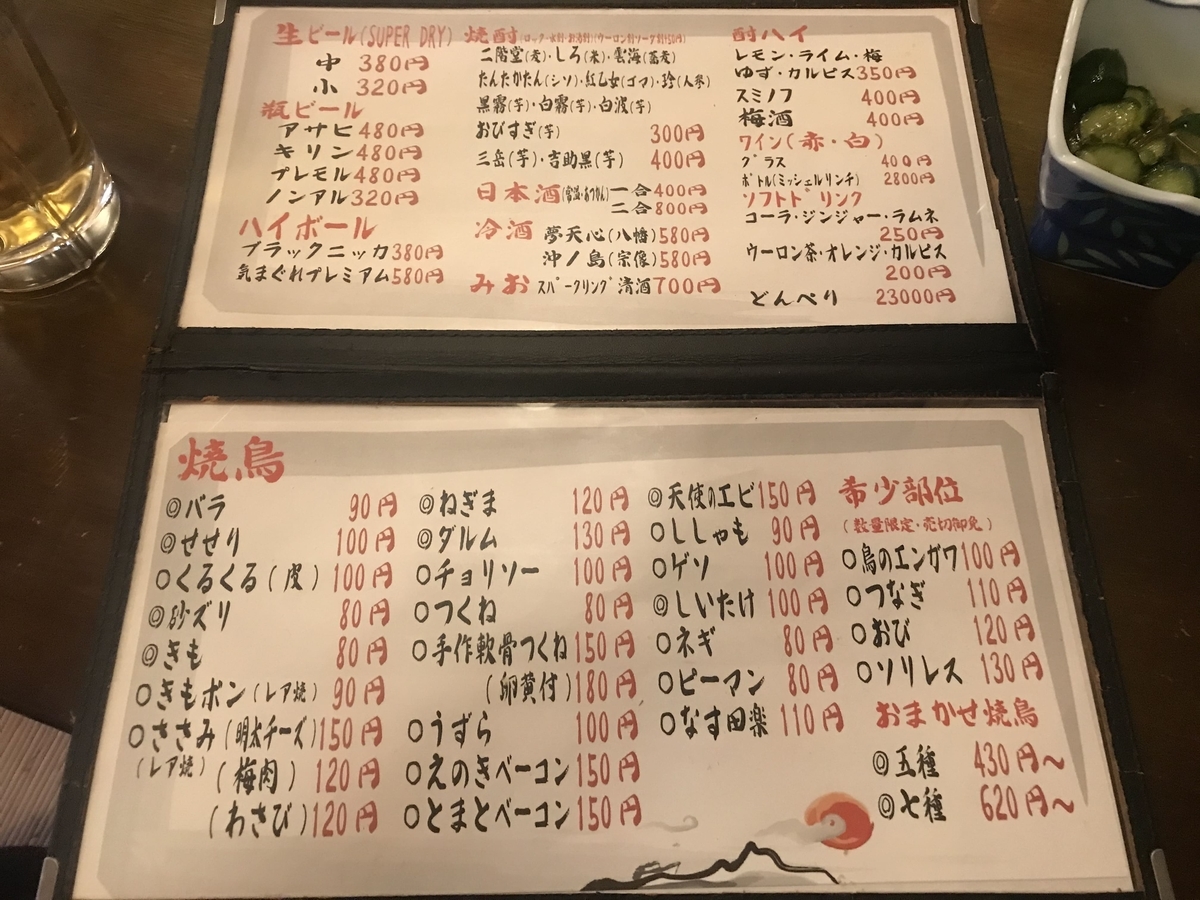 生ビール(SUPER DRY)
中 380円
小 320円
瓶ビール
アサヒ 480円
キリン 480円
プレモル 480円
ノンアル 320円
ハイボール
ブラックニッカ 380円
気まぐれプレミアム 580円
焼酎(ロック・水割・お湯割)(ウーロン割ソーダ割150円)
二階堂(麦)・しろ(米)・雲海(蕎麦)
たんたかたん(シソ)・紅乙女(ゴマ)・珍(人参)
黒霧(芋)・白霧(芋)・白波(芋)
おびすぎ(芋) 300円
三岳(芋)・吉助黒(芋) 400円
日本酒(常温・あつかん) 一合 400円
二合 800円
冷酒 夢天心(八幡) 580円
沖ノ島(宗像) 580円
みお スパークリング清酒 700円
酎ハイ
レモン・ライム・梅
ゆず・カルピス 350円
スミノフ 400円
梅酒 400円
ワイン(赤・白)
グラス 400円
ボトル(ミッシェルリンチ) 2800円
ソフトドリンク
コーラ・ジンジャー・ラムネ
250円
ウーロン茶・オレンジ・カルピス
200円
どんぺり 23000円
焼鳥
◎バラ 90円
◎せせり 100円
○くるくる(皮) 100円
◎砂ズリ 80円
◎きも 80円
○きもポン(レア焼) 90円
○ささみ(明太チーズ) 150円
(レア焼) (梅肉) 120円
(わさび) 120円
◎ねぎま 120円
◎ダルム 130円
○チョリソー 100円
○つくね 80円
○手作軟骨つくね 150円
(卵黄付) 180円
○うずら 100円
○えのきベーコン 150円
○とまとベーコン 150円
◎天使のエビ 150円
○ししゃも 90円
○ゲソ 100円
◎しいたけ 100円
○ネギ 80円
○ピーマン 80円
○なす田楽 110円
希少部位
(数量限定・売切御免)
○鳥のエンガワ 100円
○つなぎ 110円
○おび 120円
○ソリレス 130円
おまかせ焼鳥
◎五種 430円~
◎七種 620円~